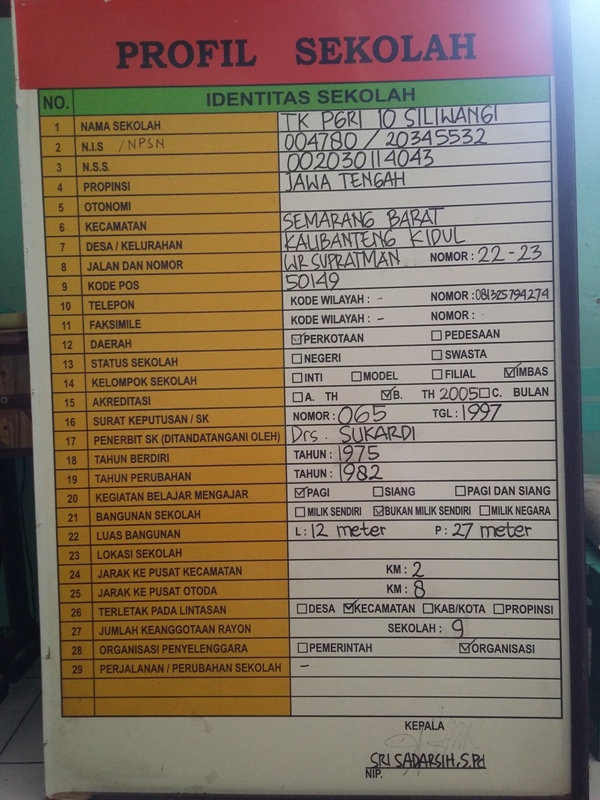 PROFIL SEKOLAH
NO. IDENTITAS SEKOLAH
1 NAMA SEKOLAH TK PGRI 10 SILIWANGI
2 N.I.S / NPSN 004780 / 20345532
3 N.S.S 002030114043
4 PROPINSI JAWA TENGAH
5 OTONOMI
6 KECAMATAN SEMARANG BARAT
7 DESA / KELURAHAN KALIBANTENG KIDUL
8 JALAN DAN NOMOR WR SUPRATMAN NOMOR : 22-23
9 KODE POS 50149
10 TELEPON KODE WILAYAH : - NOMOR : 081325794274
11 FAKSIMILE KODE WILAYAH : - NOMOR : -
12 DAERAH ☑PERKOTAAN ☐PEDESAAN
13 STATUS SEKOLAH ☐NEGERI ☐SWASTA
14 KELOMPOK SEKOLAH ☐INTI ☐MODEL ☐FILIAL ☑IMBAS
15 AKREDITASI ☐A. TH ☑B. TH 2005 ☐C. BULAN
16 SURAT KEPUTUSAN / SK NOMOR : 065 TGL : 1997
17 PENERBIT SK (DITANDATANGANI OLEH) Drs. SUKARDI
18 TAHUN BERDIRI TAHUN : 1975
19 TAHUN PERUBAHAN TAHUN : 1982
20 KEGIATAN BELAJAR MENGAJAR ☑PAGI ☐SIANG ☐PAGI DAN SIANG
21 BANGUNAN SEKOLAH ☐MILIK SENDIRI ☑BUKAN MILIK SENDIRI ☐MILIK NEGARA
22 LUAS BANGUNAN L : 12 meter P : 27 meter
23 LOKASI SEKOLAH
24 JARAK KE PUSAT KECAMATAN KM : 2
25 JARAK KE PUSAT OTODA KM : 8
26 TERLETAK PADA LINTASAN ☐DESA ☑KECAMATAN ☐KAB/KOTA ☐PROPINSI
27 JUMLAH KEANGGOTAAN RAYON SEKOLAH : 9
28 ORGANISASI PENYELENGGARA ☐PEMERINTAH ☑ORGANISASI
29 PERJALANAN / PERUBAHAN SEKOLAH -
KEPALA
SRI SADARSIH, S.Pd
NIP.